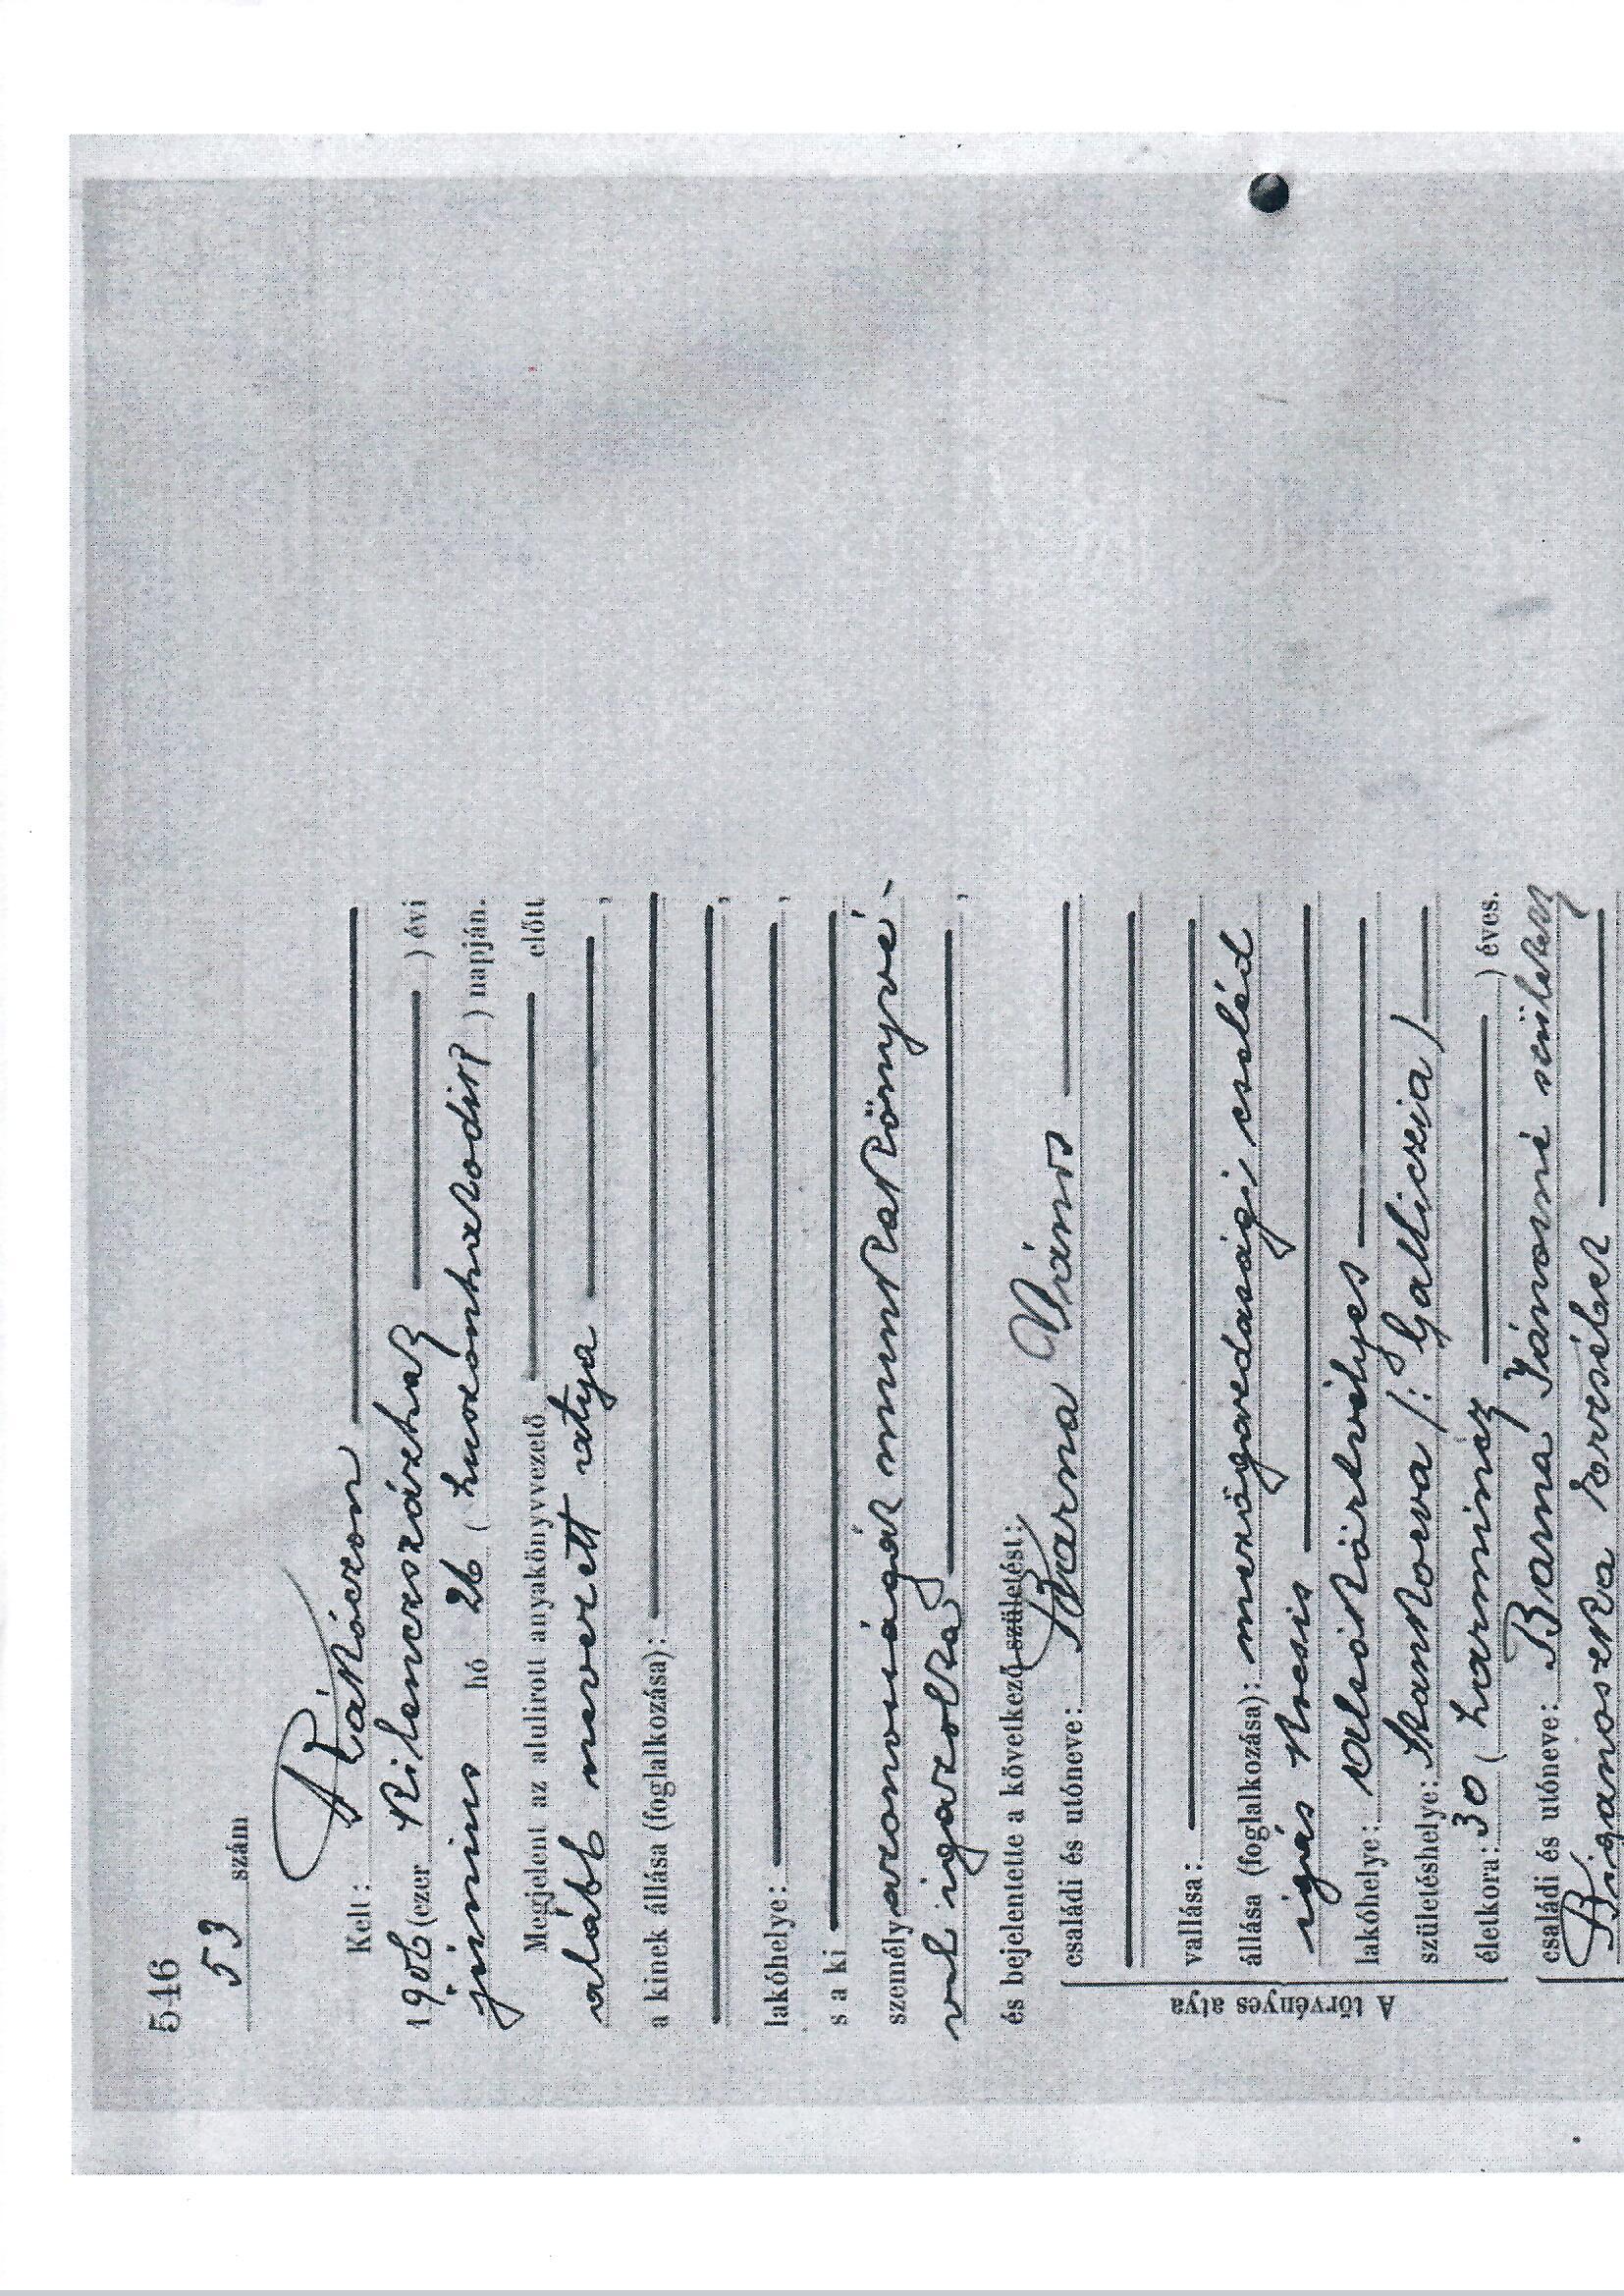 546
53 szám
Kelt: Rákóczon
1906 (ezer kilenczszázhat ) évi
június hó 26 ( huszonhatodik ) napján.
Megjelent az alulirott anyakönyvvezető előtt
alább nevezett atya ,
a kinek állása (foglalkozása):
,
lakóhelye: ,
s a ki
személyazonosságát munkakönyvé-
vel igazolta ,
és bejelentette a következő születést:
családi és utóneve: Barna János
vallása:
állása (foglalkozása): mezőgazdasági cseléd
igás kocsis
lakóhelye: Alsókörtvélyes
születéshelye: (: Galliczia)
életkora: 30 ( harmincz ) éves.
A törvényes atya
családi és utóneve: Barna Jánosné született
Erzsébet